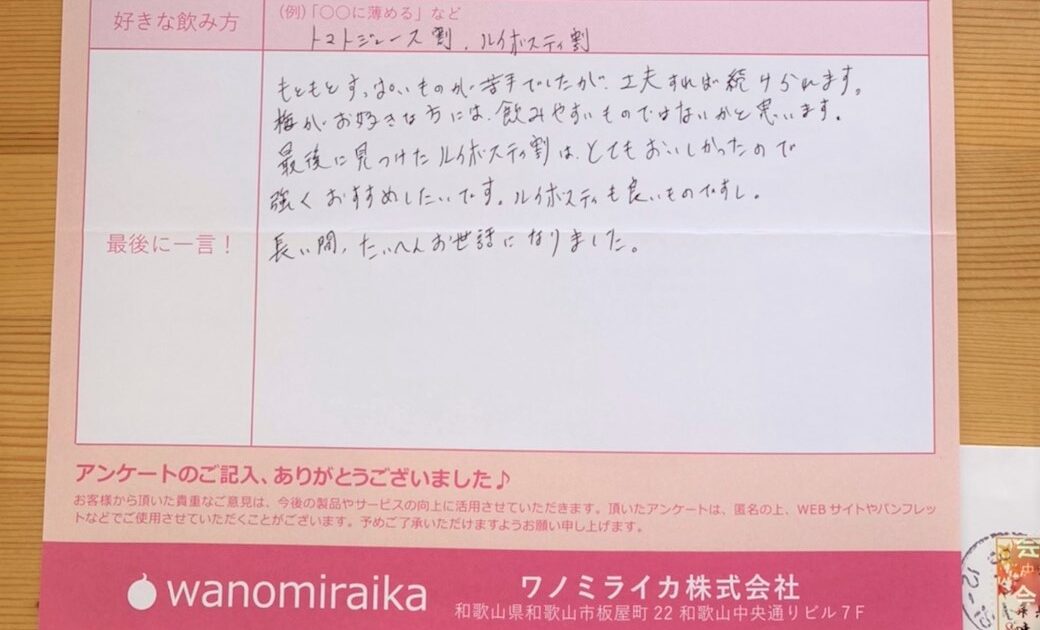 好きな飲み方
(例)「〇〇に薄める」など
トマトジュース割、ルイボスティ割
もともとすっぱいものが苦手でしたが、工夫すれば続けられます。
梅がお好きな方には、飲みやすいものではないかと思います。
最後に見つけたルイボスティ割は、とてもおいしかったので
強くおすすめしたいです。ルイボスティも良いものですし。
最後に一言!
長い間、たいへんお世話になりました。
アンケートのご記入、ありがとうございました♪
お客様から頂いた貴重なご意見は、今後の製品やサービスの向上に活用させていただきます。頂いたアンケートは、匿名の上、WEBサイトやパンフレッ
トなどでご使用させていただくことがございます。予めご了承いただけますようお願い申し上げます。
wanomiraika
ワノミライカ株式会社
和歌山県和歌山市板屋町 22 和歌山中央通りビル7F